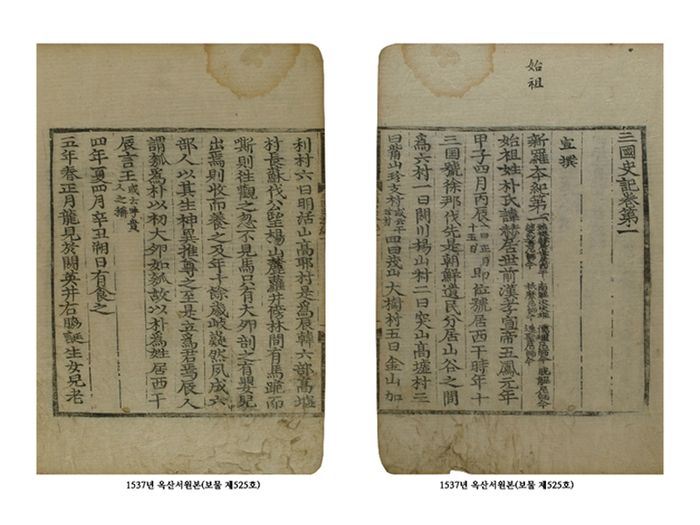 始祖
三國史記卷第一
宣撰
新羅夲紀第一
始祖姓朴氏諱赫居世前漢孝宣帝五鳳元年
甲子四月丙辰一曰正月十五日即位號居西干時年十
三国號徐那伐先是朝鮮遺民分居山谷之間
爲六村一曰閼川楊山村二曰突山高墟村三
曰觜山珍支村或云干珍村四曰茂山大樹村五曰金山加
利村六曰明活山高耶村是爲辰韓六部高墟
村長蘇伐公望楊山麓蘿井傍林間有馬跪而
嘶則往觀之忽不見馬只有大卵剖之有嬰兒
出焉則收而養之及年十餘歲岐嶷然夙成六
部人以其生神異推尊之至是立爲君焉辰人
謂瓠爲朴以初大卵如瓠故以朴爲姓居西干
辰言王或云呼貴人之稱
四年夏四月辛丑朔日有食之
五年春正月龍見於閼英井右脇誕生女兒老
1537년 옥산서원본(보물 제525호)
1537년 옥산서원본(보물 제525호)